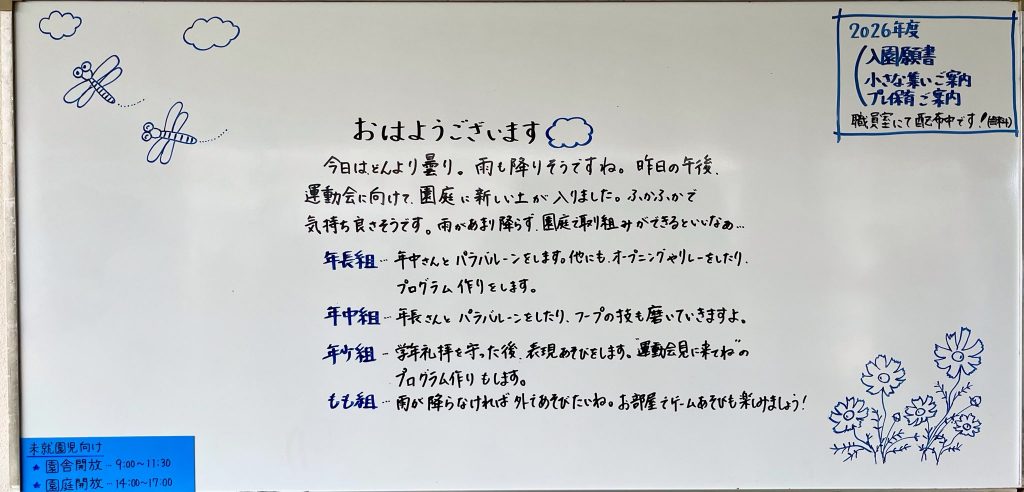 2026年度
入園願書
小さな集いご案内
プレ保育ご案内
職員室にて配布中です!(無料)
おはようございます
今日はどんより曇り。雨も降りそうですね。昨日の午後、
運動会に向けて、園庭に新しい土が入りました。ふかふかで
気持ち良さそうです。雨があまり降らず、園庭で取り組みができるといいなぁ…
年長組… 年中さんとパラバルーンをします。他にも、オープニングやリレーをしたり、
プログラム作りをします。
年中組… 年長さんとパラバルーンをしたり、フープの技も磨いていきますよ。
年少組… 学年礼拝を守った後、表現あそびをします。"運動会見に来てね"の
プログラム作りもします。
もも組… 雨が降らなければ外であそびたいね。お部屋でゲームあそびも楽しみましょう!
未就園児向け
★園舎開放…9:00〜11:30
★園庭開放…14:00〜17:00